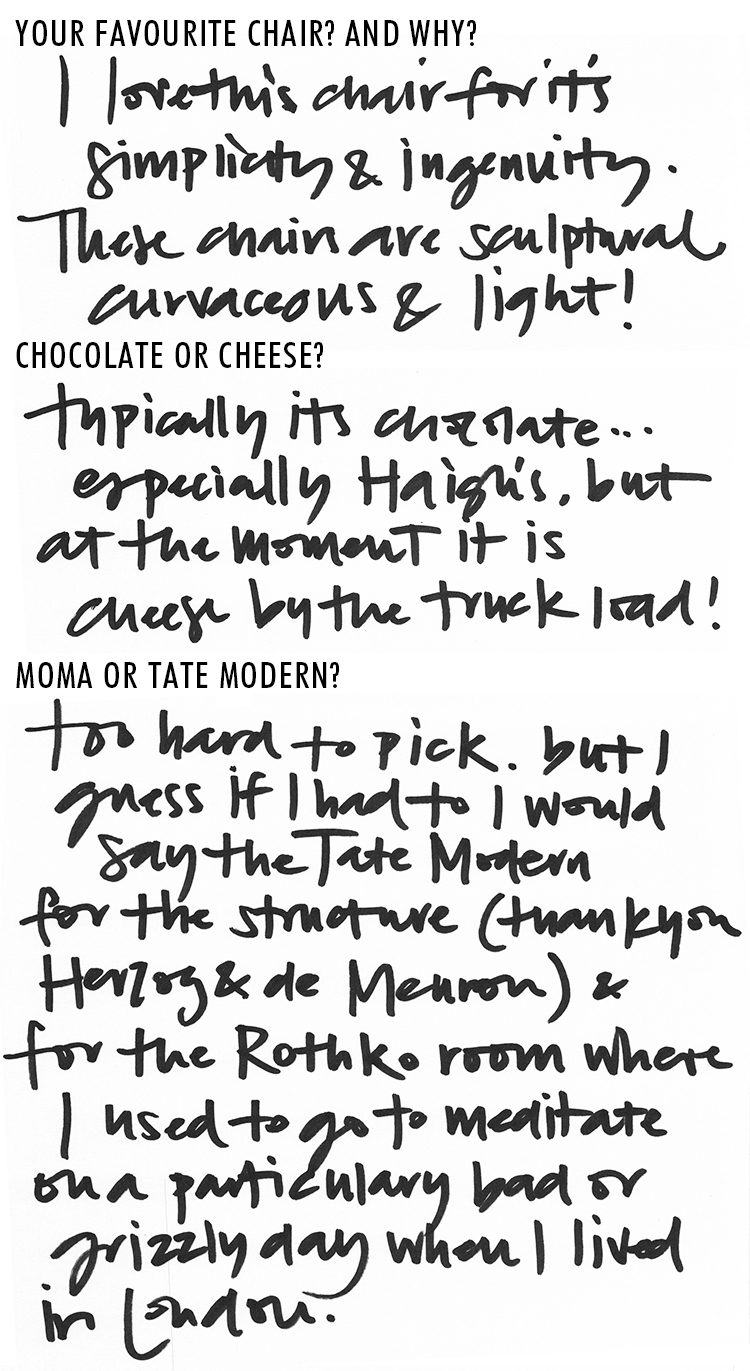 YOUR FAVOURITE CHAIR? AND WHY?
I love this chair for it's
simplicty & ingenuity.
These chairs are sculptural
curvaceous & light!
CHOCOLATE OR CHEESE?
typically its chocolate...
especially Haigh's, but
at the moment it is
cheese by the truck load!
MOMA OR TATE MODERN?
too hard to pick. but I
guess if I had to I would
say the Tate Modern
for the structure (thankyou
Herzog & de Meuron) &
for the Rothko room where
I used to go to meditate
on a particulary bad or
grizzly day when I lived
in London.